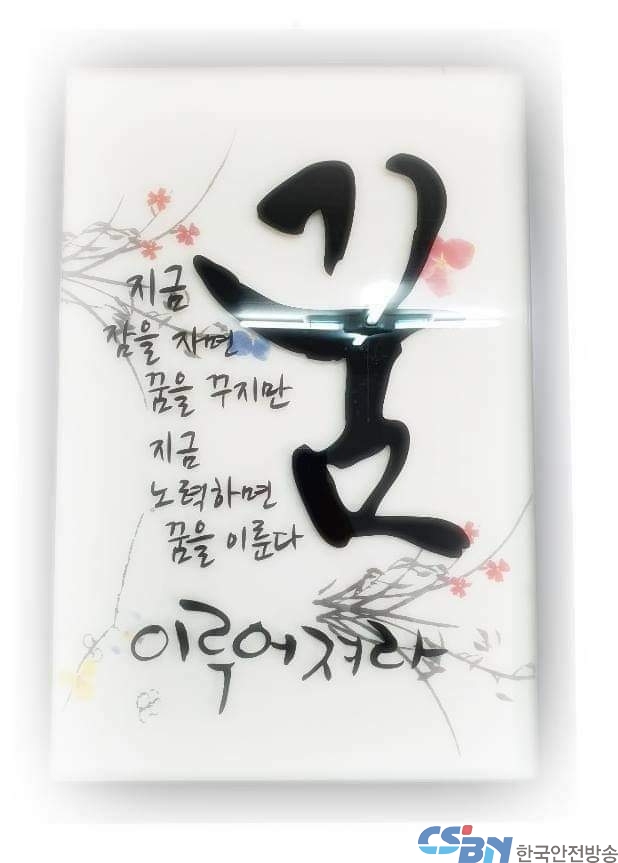 꿈
지금
잠을 자면
꿈을 꾸지만
지금
노력하면
꿈을 이룬다
이루어져라
CSBN 한국안전방송